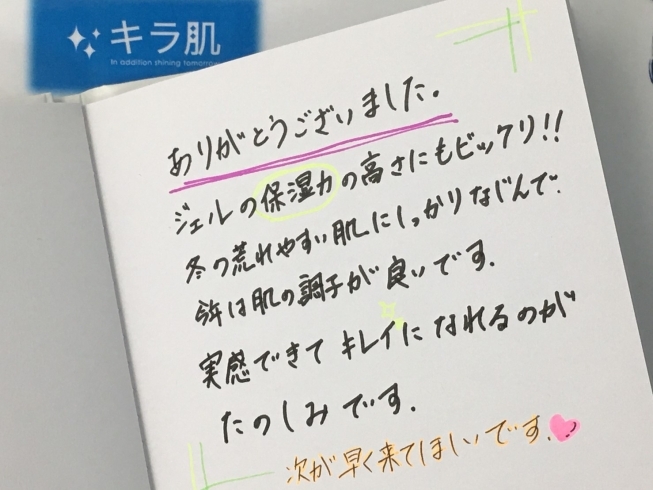 キラ肌
In addition shining tomorrow
ありがとうございました。
ジェルの保湿力の高さにもビックリ!!
冬の荒れやすい肌にしっかりなじんで、
今年は肌の調子が良いです。
実感できて キレイになれるのが
たのしみです。
次が早く来てほしいです。